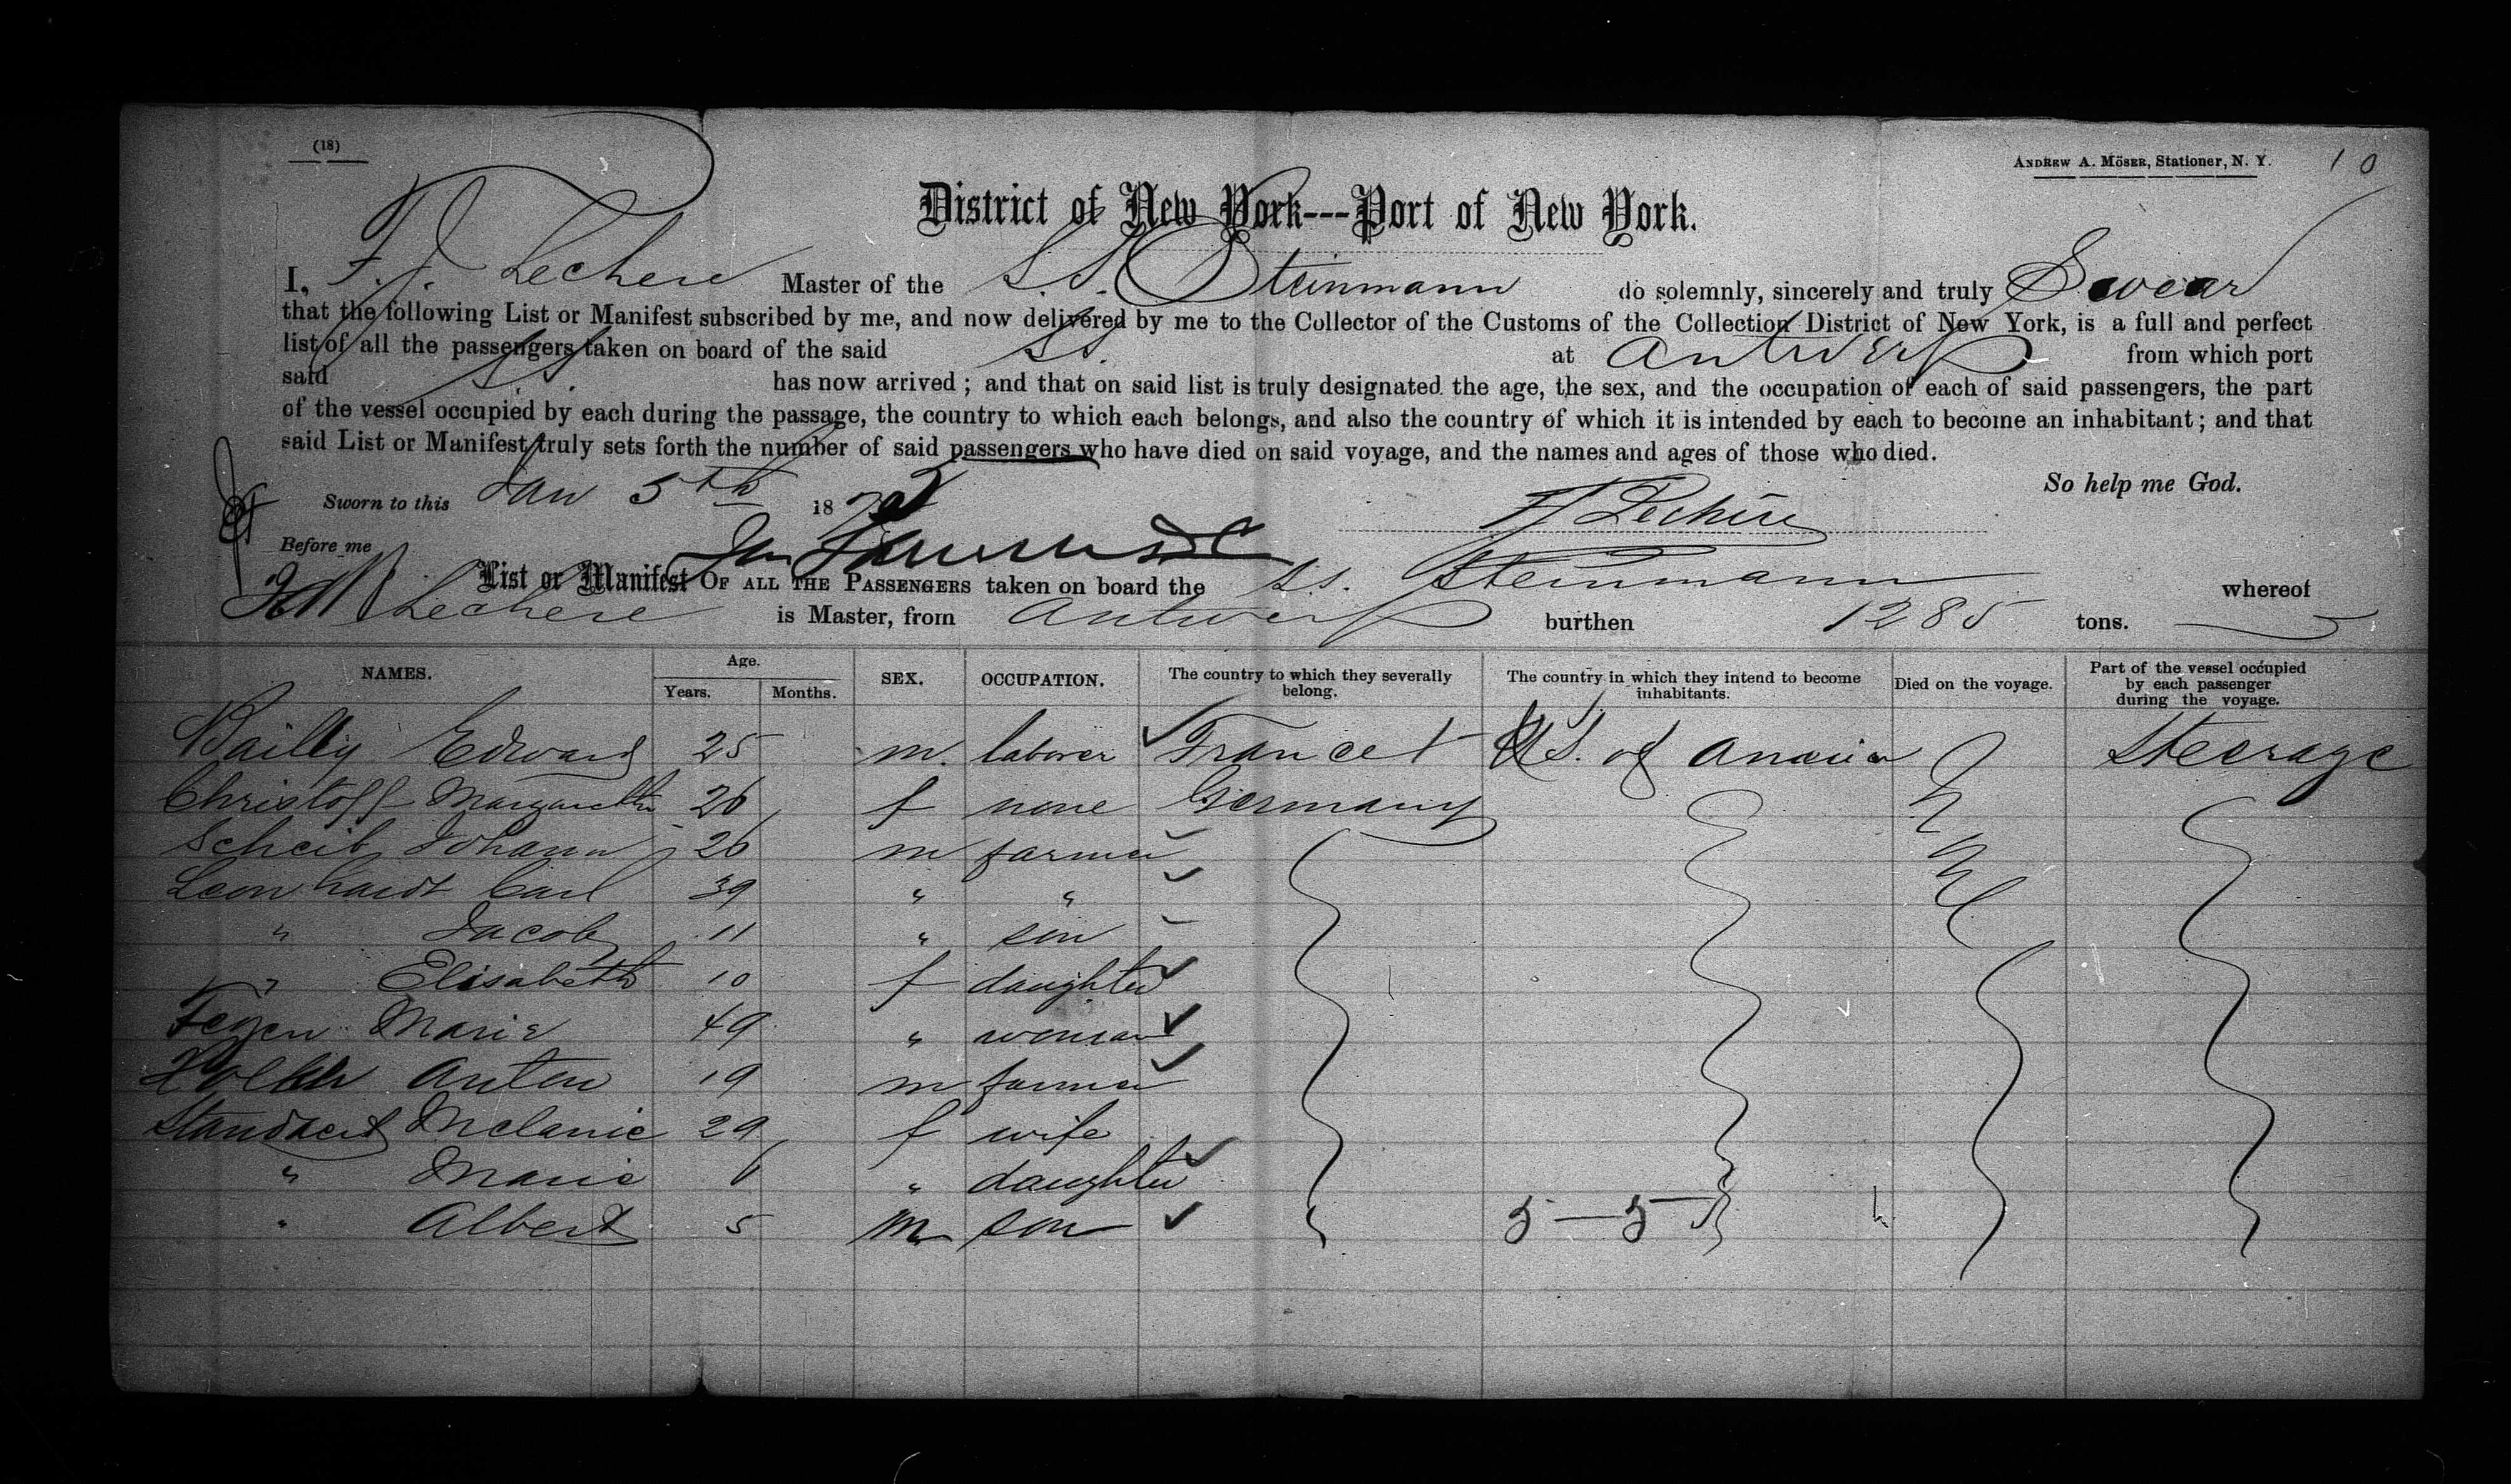 (18)
ANDREW A. MÖSER, Stationer, N. Y. 10
District of New York---Port of New York.
I, F. J. Lechere Master of the S.S. Steinmann do solemnly, sincerely and truly Swear
that the following List or Manifest subscribed by me, and now delivered by me to the Collector of the Customs of the Collection District of New York, is a full and perfect
list of all the passengers taken on board of the said SS. at Antwerp from which port
said SS. has now arrived; and that on said list is truly designated the age, the sex, and the occupation of each of said passengers, the part
of the vessel occupied by each during the passage, the country to which each belongs, and also the country of which it is intended by each to become an inhabitant; and that
said List or Manifest truly sets forth the number of said passengers who have died on said voyage, and the names and ages of those who died.
So help me God.
Sworn to this Jan 5th 18
Before me
F J Lechere
List or Manifest OF ALL THE PASSENGERS taken on board the S.S. Steinmann whereof
Lechere is Master, from Antwerp burthen 1285 tons.
NAMES. Age. Years. Months. SEX. OCCUPATION. The country to which they severally belong. The country in which they intend to become inhabitants. Died on the voyage. Part of the vessel occupied by each passenger during the voyage.
Bailly Edward 25 m. laborer France U.S. of America Steerage
Christoff Margaretha 26 f none Germany
Scheib Johann 26 m farmer
Leonhardt Carl 39 " "
" Jacob 11 " son
" Elisabeth 10 f daughter
Feyen Marie 49 " woman
Anton 19 m farmer
Standaert Melanie 29 f wife
" Marie 6 " daughter
" Albert 5 m son
5-5